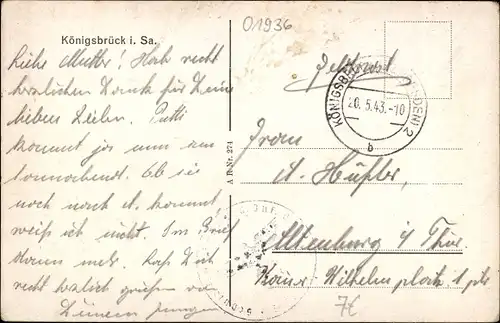 01936
Königsbrück i. Sa.
Liebe Mutter! Hab recht
herzlichen Dank für Deine
lieben Zeilen. Putti
kommt ja nun am
Sonnabend. Ob sie
noch nach A. kommt
weiß ich nicht. Im Brief
dann mehr. Laß Dich
recht herzlich grüßen von
Deinem Jungen
A B-Nr. 274
Feldpost
KÖNIGSBRÜCK (DRESDEN) 2
20.5.43.-10
b
Frau
A.
Altenburg i/ Thür.
Kaiser Wilhelm platz 1 ptr